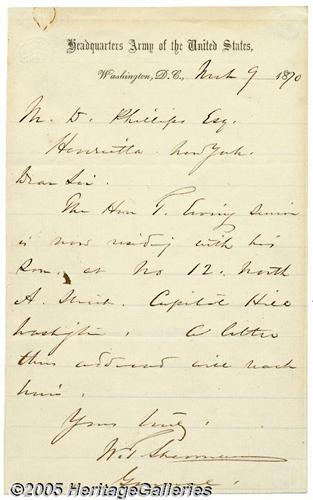 Headquarters Army of the United States,
Washington, D.C., Mch 9 1870
M. D. Phillips Esq.
Henrietta New York.
Dear Sir.
The Hon T. Ewing Senior
is now residing with his
Son, at No 12. North
A Street. Capitol Hill
Washington. A letter
thus addressed will reach
him.
Yours truly,
W. T. Sherman
General.
©2005 HeritageGalleries